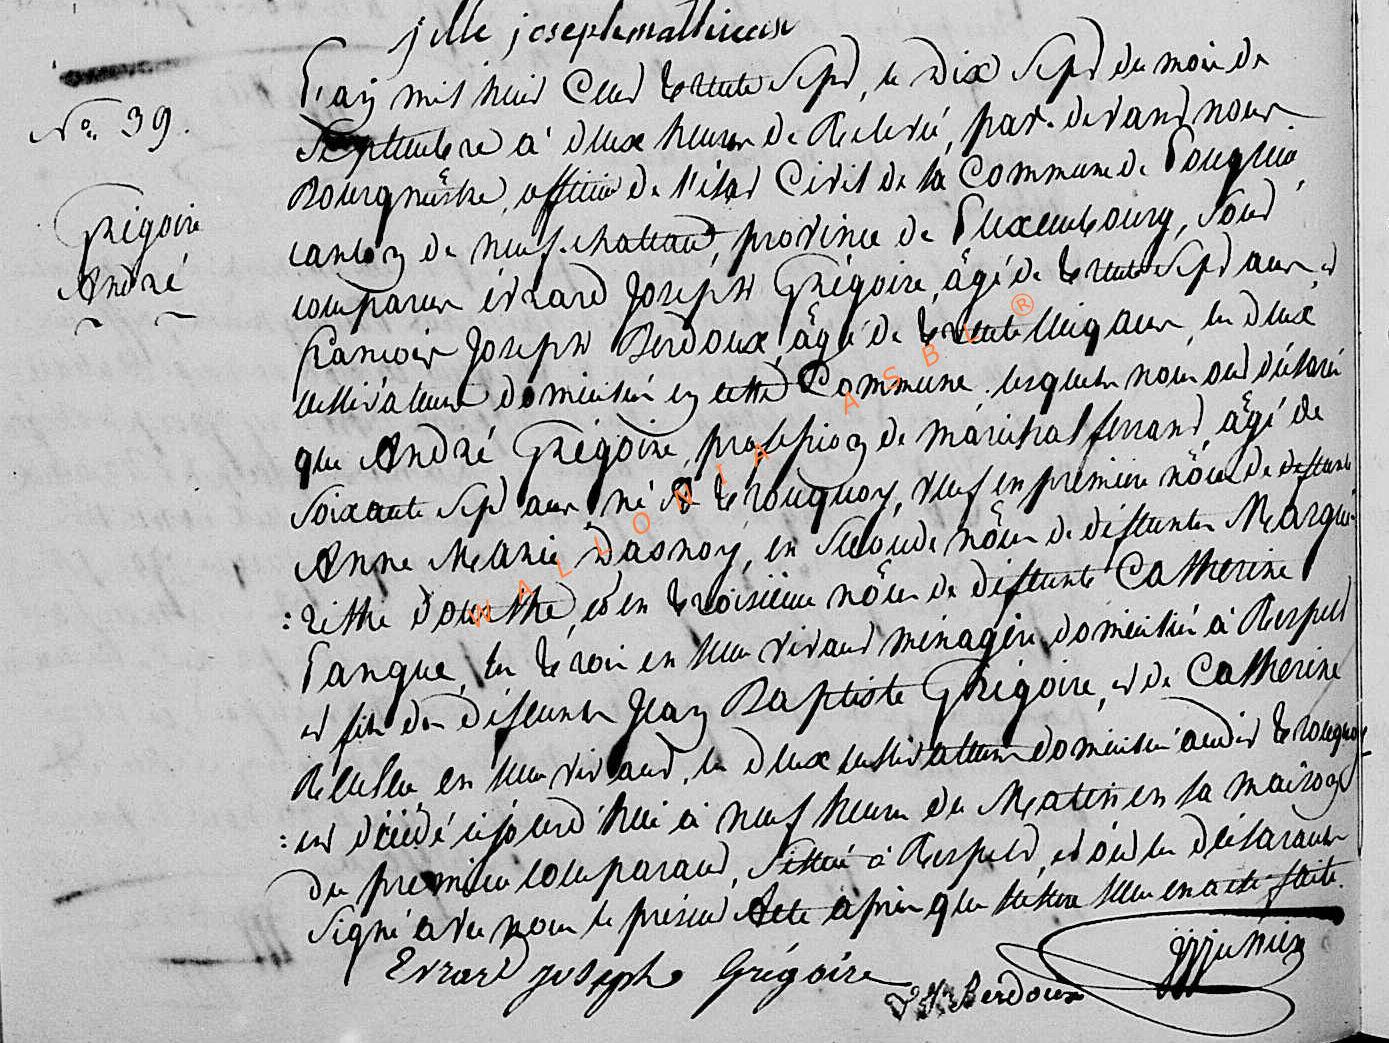 jille joseph mathieux
N° 39.
Grégoire
André
L'an mil huit Cent trente Sept, le Dix Sept du mois de
Septembre à deux heures de Relevé, par-devant nous
Bourgmêstre, officier de l'état Civil de la Commune de Longlier
canton de neufchateau, province de Luxembourg, sont
comparus évrard Joseph Grégoire, âgé de trente Sept ans et
françois Joseph Berdoux, âgé de trente cinq ans, les deux
cultivateurs domiciliés en cette Commune. lesquels nous ont déclaré
que André Grégoire, profession de maréchal ferrant, âgé de
soixante Sept ans né à tronquoy, veuf en première nôce de deffunte
Anne Marie Dasnoy, en seconde nôce de deffunte Margue-
:ritte d'ourthe, et en troisième nôce de deffunte Catherine
Lanque, les trois en leur vivant ménagère domiciliés à Respelt
et fils des deffunts Jean Baptiste Grégoire, et de Catherine
en leur vivant, les deux cultivateurs domiciliés audit tronquoy
: est décédé cejourd'hui à neuf heures du Matin en la maison
du premier comparant, sittuée à Respelt, et ont les déclarants
Signé avec nous le présent Acte après que lecture leur en a été faite.
Evrard joseph Grégoire
Berdoux